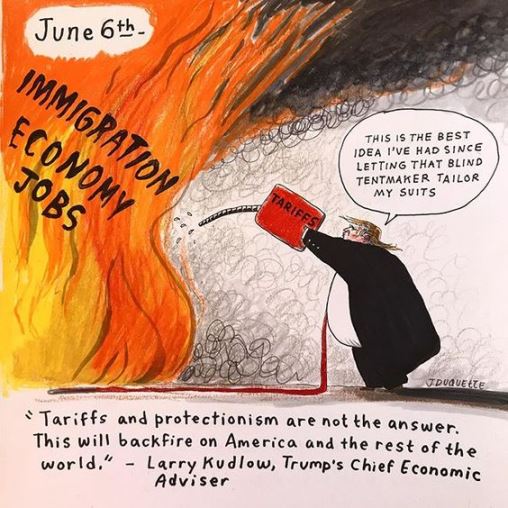 June 6th-
IMMIGRATION
ECONOMY
JOBS
THIS IS THE BEST
IDEA I'VE HAD SINCE
LETTING THAT BLIND
TENTMAKER TAILOR
MY SUITS
TARIFFS
J.DUQUETTE
"Tariffs and protectionism are not the answer.
This will backfire on America and the rest of the
world." - Larry Kudlow, Trump's Chief Economic
Adviser